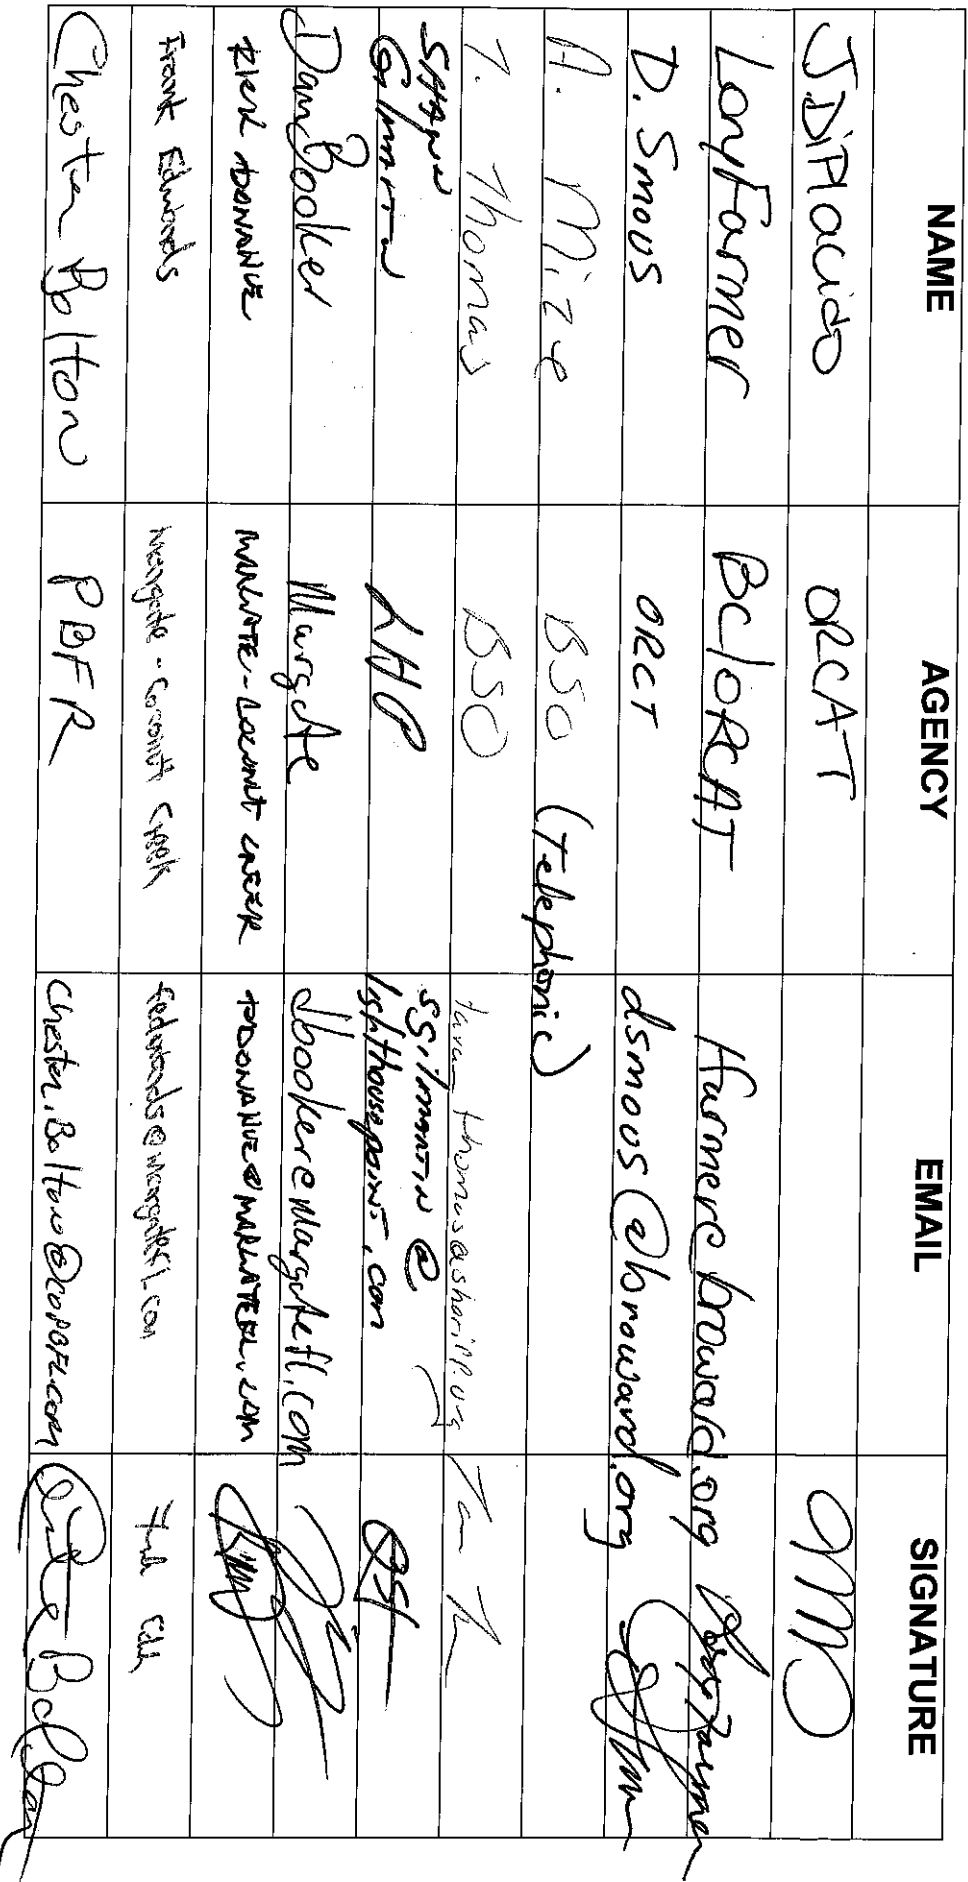 NAME AGENCY EMAIL SIGNATURE
J DiPlacido ORCAT
Lory Farmer BC/ORCAT lfarmer@broward.org
D. Smous ORCT dsmous@broward.org
A. Mize BSO (Telephonic)
T. Thomas BSO
SHAWN
Gilmartin LHP sgilmartin@
lighthousepoint.com
Dan Booker Margate dbooker@margatefl.com
RICK DONAHUE MARGATE-COCONUT CREEK RDONAHUE@MARGATEFL.COM
Frank Edwards Margate-Coconut Creek fedwards@margatefl.com
Chester Bolton PBFR Chester.Bolton@copbfl.com Chester Bolton